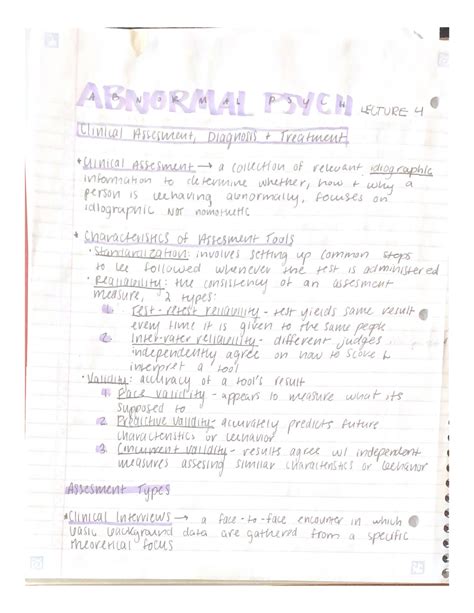 ABNORMAL PSYCH LECTURE 4
Clinical Assesment, Diagnosis + Treatment
* Clinical Assesment → a collection of relevant idiographic
information to determine whether, how + why a
person is behaving abnormally, focuses on
idiographic not nomothetic
* Characteristics of Assesment Tools
• Standardization: involves setting up common steps
to be followed whenever the test is administered
• Realiability: the consistency of an assesment
measure, 2 types:
1. Test-retest reliability - test yields same result
every time it is given to the same people
2. Inter-rater reliability - different judges
independently agree on how to score +
interpret a tool
• Validity: accuracy of a tool's result
1. Face validity - appears to measure what its
supposed to
2. Predictive validity - accurately predicts future
characteristics or behavior
3. Concurrent validity - results agree w/ independent
measures assesing similar characteristics or behavior
Assesment Types
* Clinical Interviews → a face-to-face encounter in which
basic background data are gathered from a specific
theoretical focus